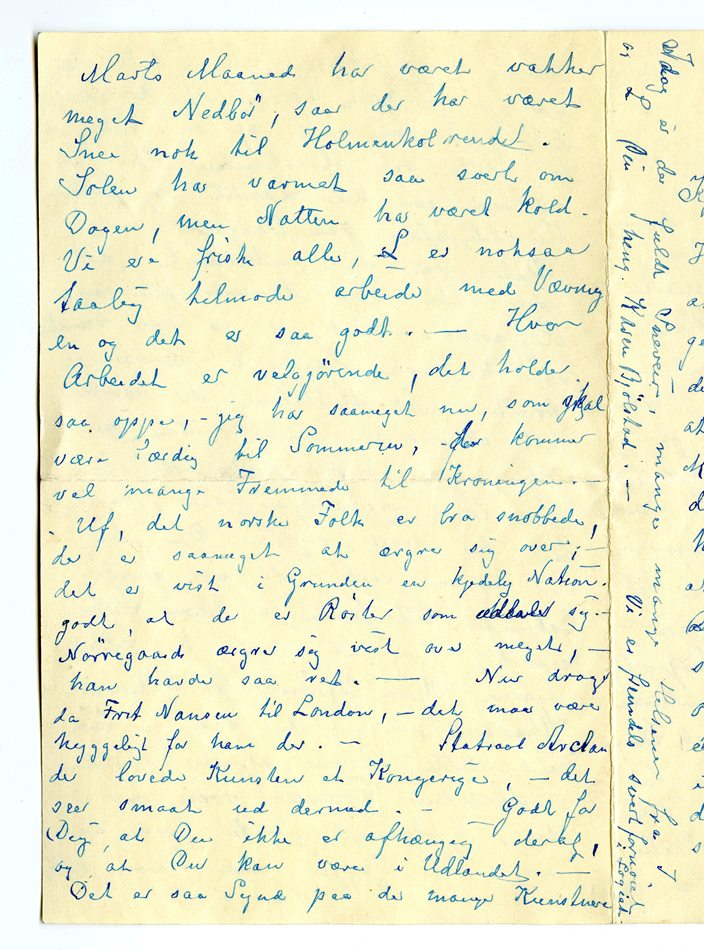 Marts Maaned har været vakker
meget Nedbör, saa der har været
Snee nok til Holmenkolrendet.
Solen har varmet saa svert om
Dagen, men Natten har været kold.
Vi er friske alle, L er noksaa
taalig tilmode arbeide med Vævning
en og det er saa godt. — Hvor
Arbeidet er velgjörende, det holder
saa oppe, - jeg har saameget nu, som skal
være færdig til Sommeren, der kommer
vel mange Fremmede til Kroningen. —
Uf, det norske Folk er bra snobbede,
der er saameget at ærgre sig over, —
det er vist i Grunden en kjedelig Nation.
godt, at der er Röster som udtaler sig. -
Nörregaard ærgrer sig vist over meget, —
han havde saa ret. — Nu drage
da Frit Nansen til London, — det maa være
hyggeligt for ham der. — Statraad Arctan
der lovede Kunsten et Kongerige, — det
seer smaat ud dermed. — Godt for
Dig, at Du ikke er afhængig deraf,
og at Du kan være i Udlandet. —
Det er saa Synd paa de mange Kunstnere
Idag er der fuldt Sneveir, mange mange Hilsener fra J
og L Din heng. Karen Bjölstad. — Vi er fremdeles svert fornöiet
i Logiet.